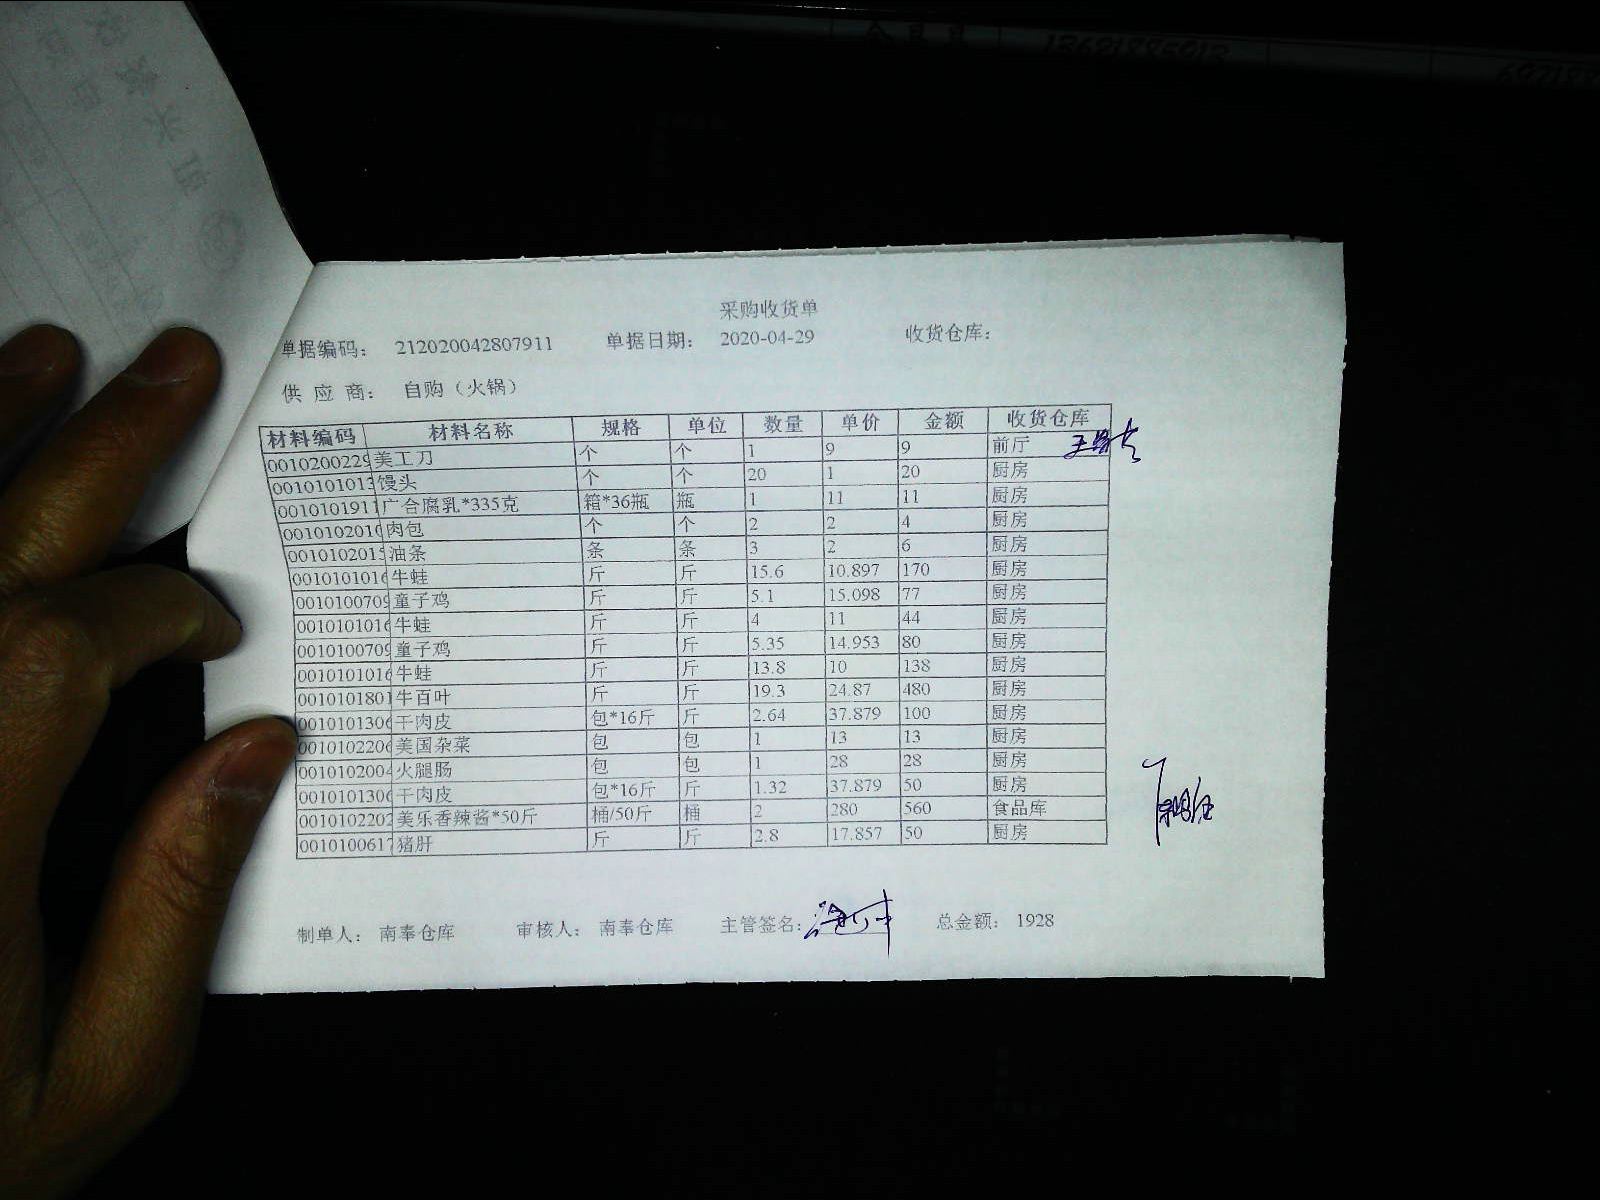 采购收货单
单据编码： 212020042807911 单据日期： 2020-04-29 收货仓库：
供 应 商： 自购（火锅）
材料编码 材料名称 规格 单位 数量 单价 金额 收货仓库
0010200229 美工刀 个 个 1 9 9 前厅
0010101013 馒头 个 个 20 1 20 厨房
0010101911 广合腐乳*335克 箱*36瓶 瓶 1 11 11 厨房
0010102016 肉包 个 个 2 2 4 厨房
0010102015 油条 条 条 3 2 6 厨房
0010101016 牛蛙 斤 斤 15.6 10.897 170 厨房
0010100709 童子鸡 斤 斤 5.1 15.098 77 厨房
0010101016 牛蛙 斤 斤 4 11 44 厨房
0010100709 童子鸡 斤 斤 5.35 14.953 80 厨房
0010101016 牛蛙 斤 斤 13.8 10 138 厨房
0010101801 牛百叶 斤 斤 19.3 24.87 480 厨房
0010101306 干肉皮 包*16斤 斤 2.64 37.879 100 厨房
0010102206 美国杂菜 包 包 1 13 13 厨房
0010102004 火腿肠 包 包 1 28 28 厨房
0010101306 干肉皮 包*16斤 斤 1.32 37.879 50 厨房
0010102202 美乐香辣酱*50斤 桶/50斤 桶 2 280 560 食品库
0010100617 猪肝 斤 斤 2.8 17.857 50 厨房
制单人： 南奉仓库 审核人： 南奉仓库 主管签名： 总金额： 1928